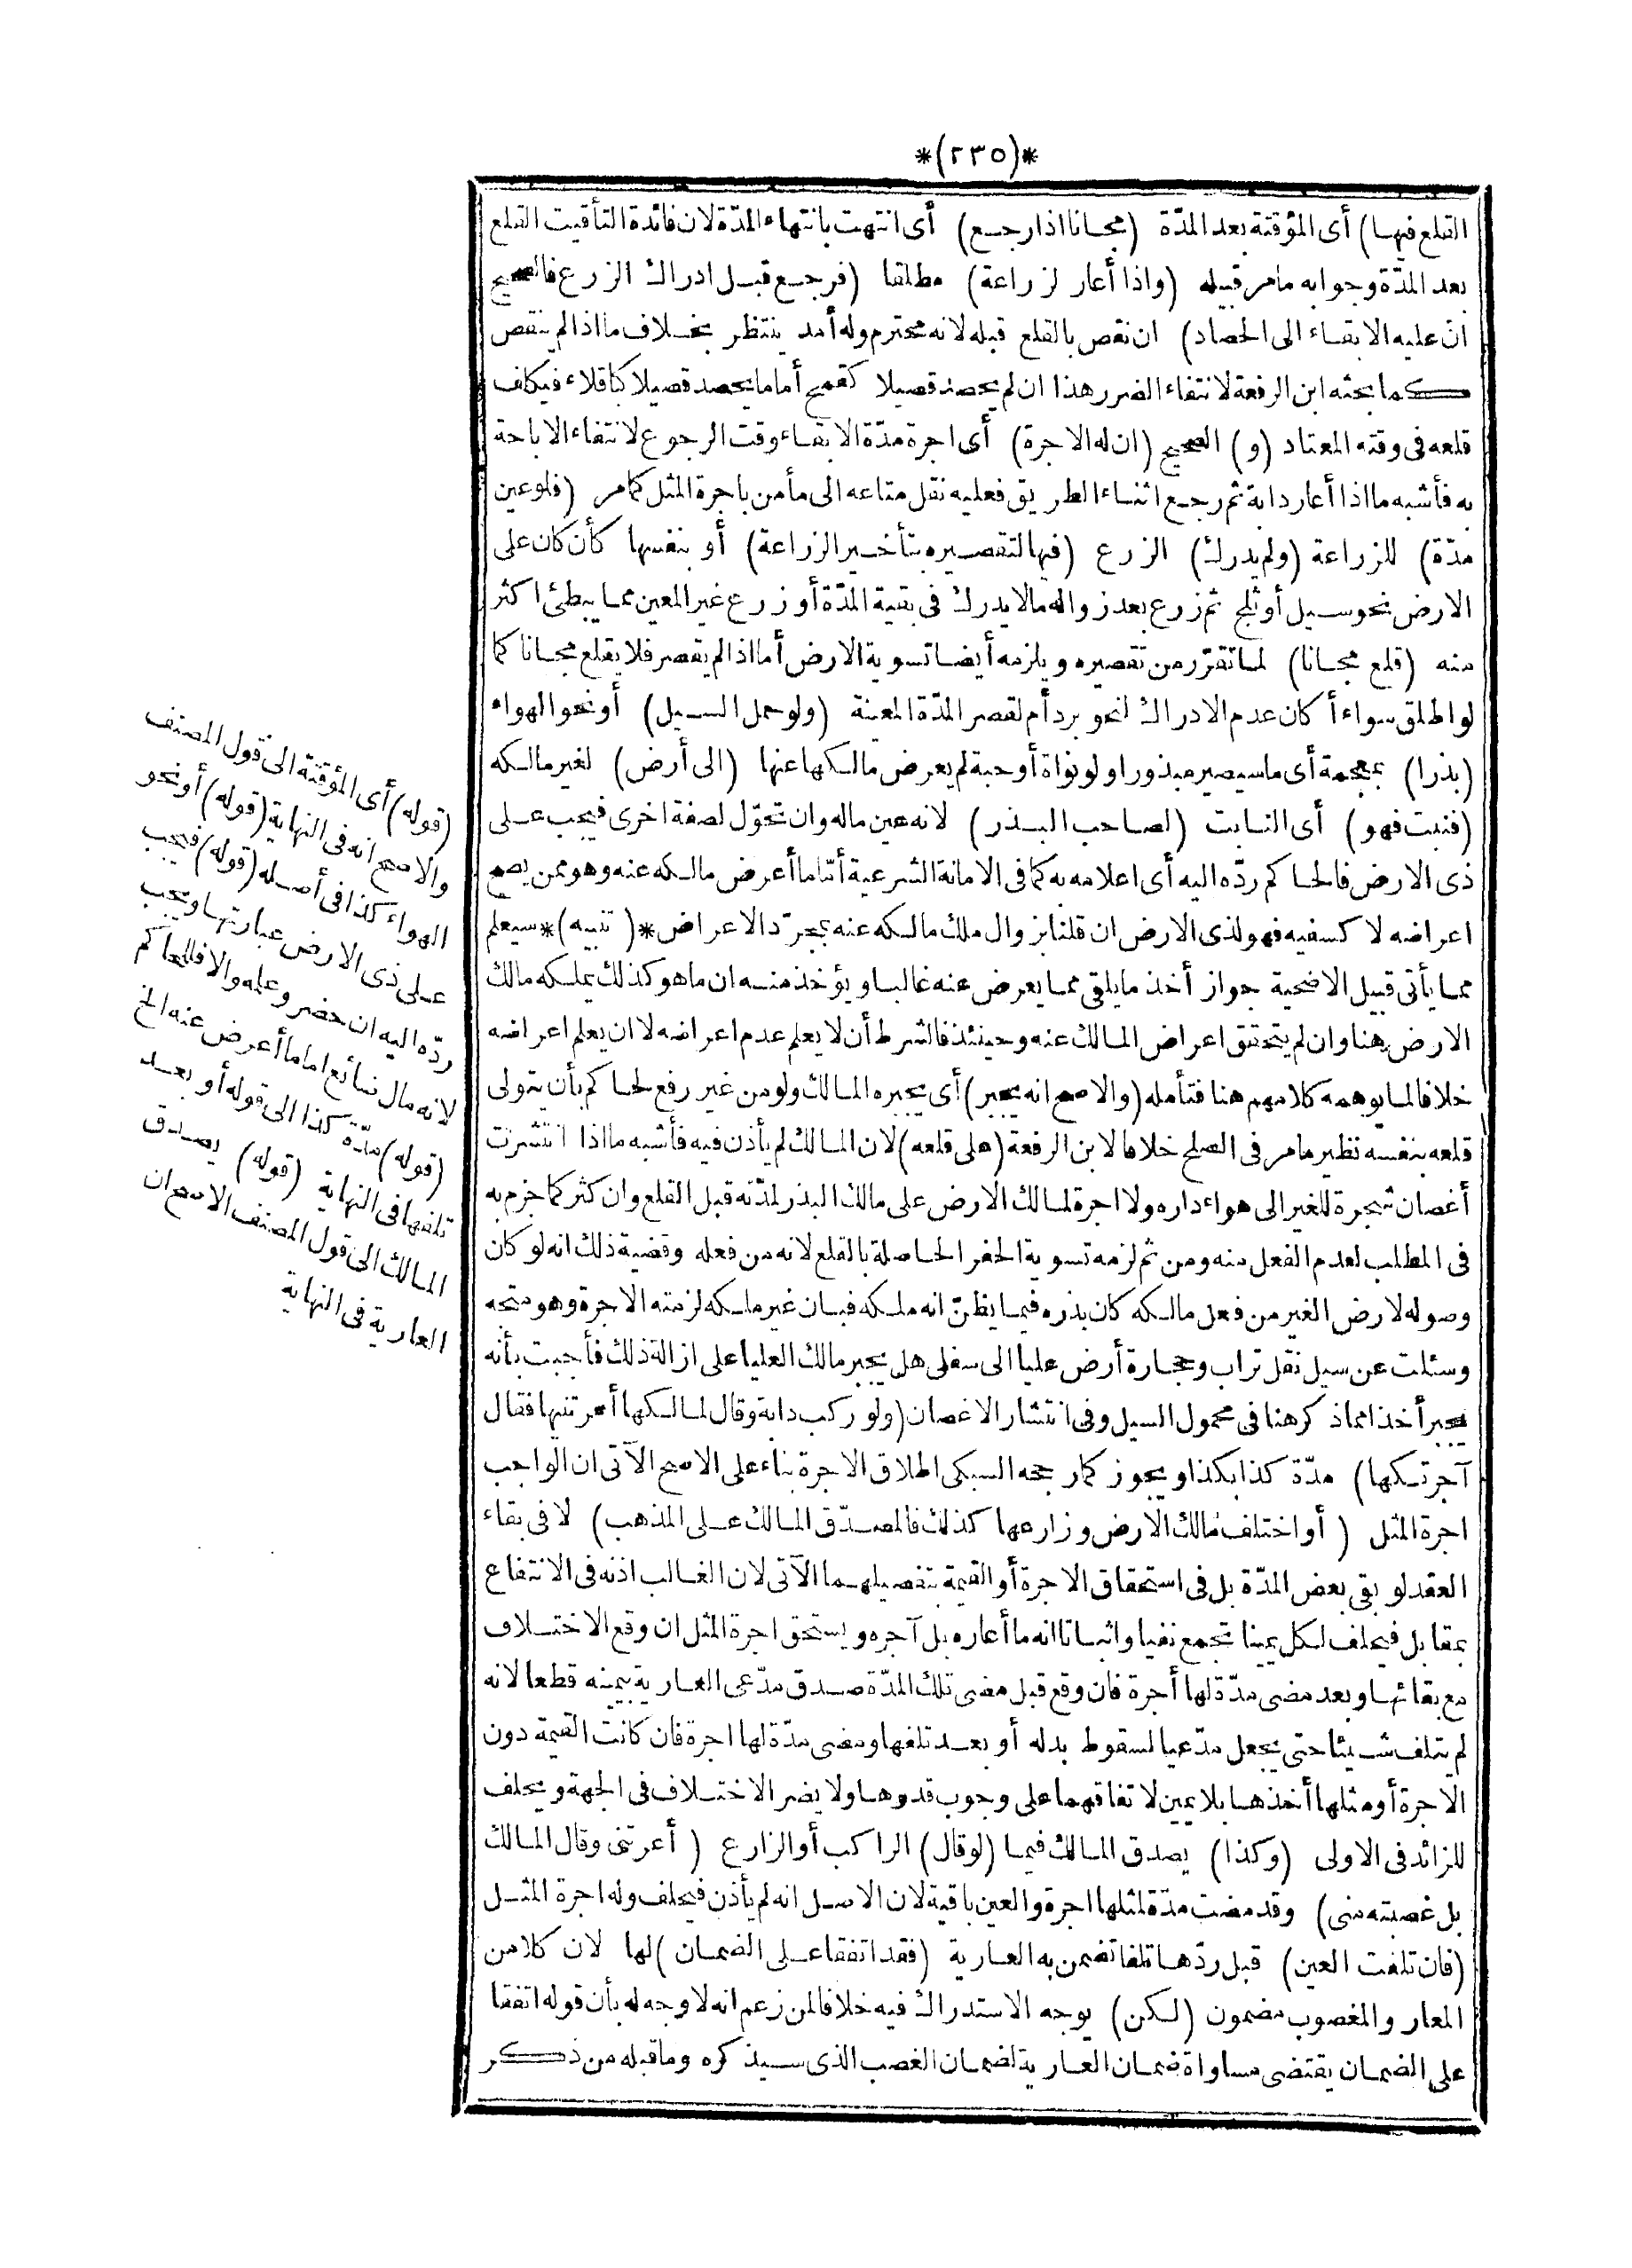 *(٢٣٥)*
القلع فيها) أى المؤقتة بعد المدّة (مجانا اذا رجع) أى انتهت بانتهاء المدّة لان فائدة التأقيت القلع
بعد المدّة وجوابه ما مر قبيله (واذا أعار لزراعة) مطلقا (فرجع قبل ادراك الزرع فالصحيح
ان عليه الابقاء الى الحصاد) ان نقص بالقلع قبله لانه محترم وله أمد ينتظر بخلاف ما اذا لم ينقص
كما بحثه ابن الرفعة لانتفاء الضرر هذا ان لم يحصد قصيلا كقمح أما ما يحصد قصيلا كباقلاء فيكلف
قلعه فى وقته المعتاد (و) الصحيح (ان له الاجرة) أى اجرة مدّة الابقاء وقت الرجوع لانتفاء الاباحة
به فأشبه ما اذا أعار دابة ثم رجع اثناء الطريق فعليه نقل متاعه الى مأمن باجرة المثل كما مر (فلو عين
مدّة) للزراعة (ولم يدرك) الزرع (فيها لتقصيره بتأخير الزراعة) أو بنفسها كأن كان على
الارض نحو سيل أو ثلج ثم زرع بعد زواله مالا يدرك فى بقية المدّة أو زرع غير المعين مما يبطئ اكثر
منه (قلع مجانا) لما تقرّر من تقصيره ويلزمه أيضا تسوية الارض أما اذا لم يقصر فلا يقلع مجانا كما
لو اطلق سواء أكان عدم الادراك لنحو برد أم لقصر المدّة المعينة (ولو حمل السيل) أو نحو الهواء
(بذرا) بمعجمة أى ما سيصير مبذورا ولو نواة أو حبة لم يعرض مالكها عنها (الى أرض) لغير مالكه
(فنبت فهو) أى النابت (لصاحب البذر) لانه عين ماله وان تحوّل لصفة اخرى فيجب على
ذى الارض فالحاكم ردّه اليه أى اعلامه به كما فى الامانة الشرعية أمّا ما أعرض مالكه عنه وهو ممن يصح
اعراضه لا كسفيه فهو لذى الارض ان قلنا بزوال ملك مالكه عنه بمجرّد الاعراض *(تنبيه)* سيعلم
مما يأتى قبيل الاضحية جواز أخذ ما يلقى مما يعرض عنه غالبا ويؤخذ منه ان ما هو كذلك يملكه مالك
الارض هنا وان لم يتحقق اعراض المالك عنه وحينئذ فالشرط أن لا يعلم عدم اعراضه لا ان يعلم اعراضه
خلافا لما يوهمه كلامهم هنا فتأمله (والاصح انه يجبر) أى يجبره المالك ولو من غير رفع لحاكم بأن يتولى
قلعه بنفسه نظير ما مر فى الصلح خلافا لابن الرفعة (على قلعه) لان المالك لم يأذن فيه فأشبه ما اذا انتشرت
أغصان شجرة للغير الى هواء داره ولا اجرة لمالك الارض على مالك البذر لمدّته قبل القلع وان كثر كما جزم به
فى المطلب لعدم الفعل منه ومن ثم لزمه تسوية الحفر الحاصلة بالقلع لانه من فعله وقضية ذلك انه لو كان
وصوله لارض الغير من فعل مالكه كان بذره فيما يظنّ انه ملكه فبان غير ملكه لزمته الاجرة وهو متجه
وسئلت عن سيل نقل تراب وحجارة أرض عليا الى سفلى هل يجبر مالك العليا على ازالة ذلك فأجبت بأنه
يجبر أخذا مما ذكر هنا فى محمول السيل وفى انتشار الاغصان (ولو ركب دابة وقال لمالكها أعرتنيها فقال
آجرتكها) مدّة كذا بكذا ويجوز كما رجحه السبكى اطلاق الاجرة بناء على الاصح الآتى ان الواجب
اجرة المثل (أو اختلف مالك الارض وزارعها كذلك فالمصدّق المالك على المذهب) لا فى بقاء
العقد لو بقى بعض المدّة بل فى استحقاق الاجرة أو القيمة بتفصيلهما الآتى لان الغالب اذنه فى الانتفاع
بمقابل فيحلف لكل يمينا تجمع نفيا واثباتا انه ما أعاره بل آجره ويستحق اجرة المثل ان وقع الاختلاف
مع بقائها وبعد مضى مدّة لها أجرة فان وقع قبل مضى تلك المدّة صدق مدّعى العارية بيمينه قطعا لانه
لم يتلف شيئا حتى يجعل مدّعيا لسقوط بدله أو بعد تلفها ومضى مدّة لها اجرة فان كانت القيمة دون
الاجرة أو مثلها أخذها بلا يمين لاتفاقهما على وجوب قدرها ولا يضر الاختلاف فى الجهة ويحلف
للزائد فى الاولى (وكذا) يصدق المالك فيما (لو قال) الراكب أو الزارع (أعرتنى وقال المالك
بل غصبته منى) وقد مضت مدّة لمثلها اجرة والعين باقية لان الاصل انه لم يأذن فيحلف وله اجرة المثل
(فان تلفت العين) قبل ردّها تلفا تضمن به العارية (فقد اتفقا على الضمان) لها لان كلا من
المعار والمغصوب مضمون (لكن) يوجه الاستدراك فيه خلافا لمن زعم انه لا وجه له بأن قوله اتفقا
على الضمان يقتضى مساواة ضمان العارية لضمان الغصب الذى سيذكره وما قبله من ذكر
(قوله) أى المؤقتة الى قول المصنف
والاصح انه فى النهاية (قوله) أو نحو
الهواء كذا فى أصله (قوله) فيجب
على ذى الارض عبارتها ويجب
ردّه اليه ان حضر وعلمه والا فللحاكم
لانه مال ضائع اما ما أعرض عنه الخ
(قوله) مدّة كذا الى قوله أو بعد
تلفها فى النهاية (قوله) يصدق
المالك الى قول المصنف الاصح ان
العارية فى النهاية